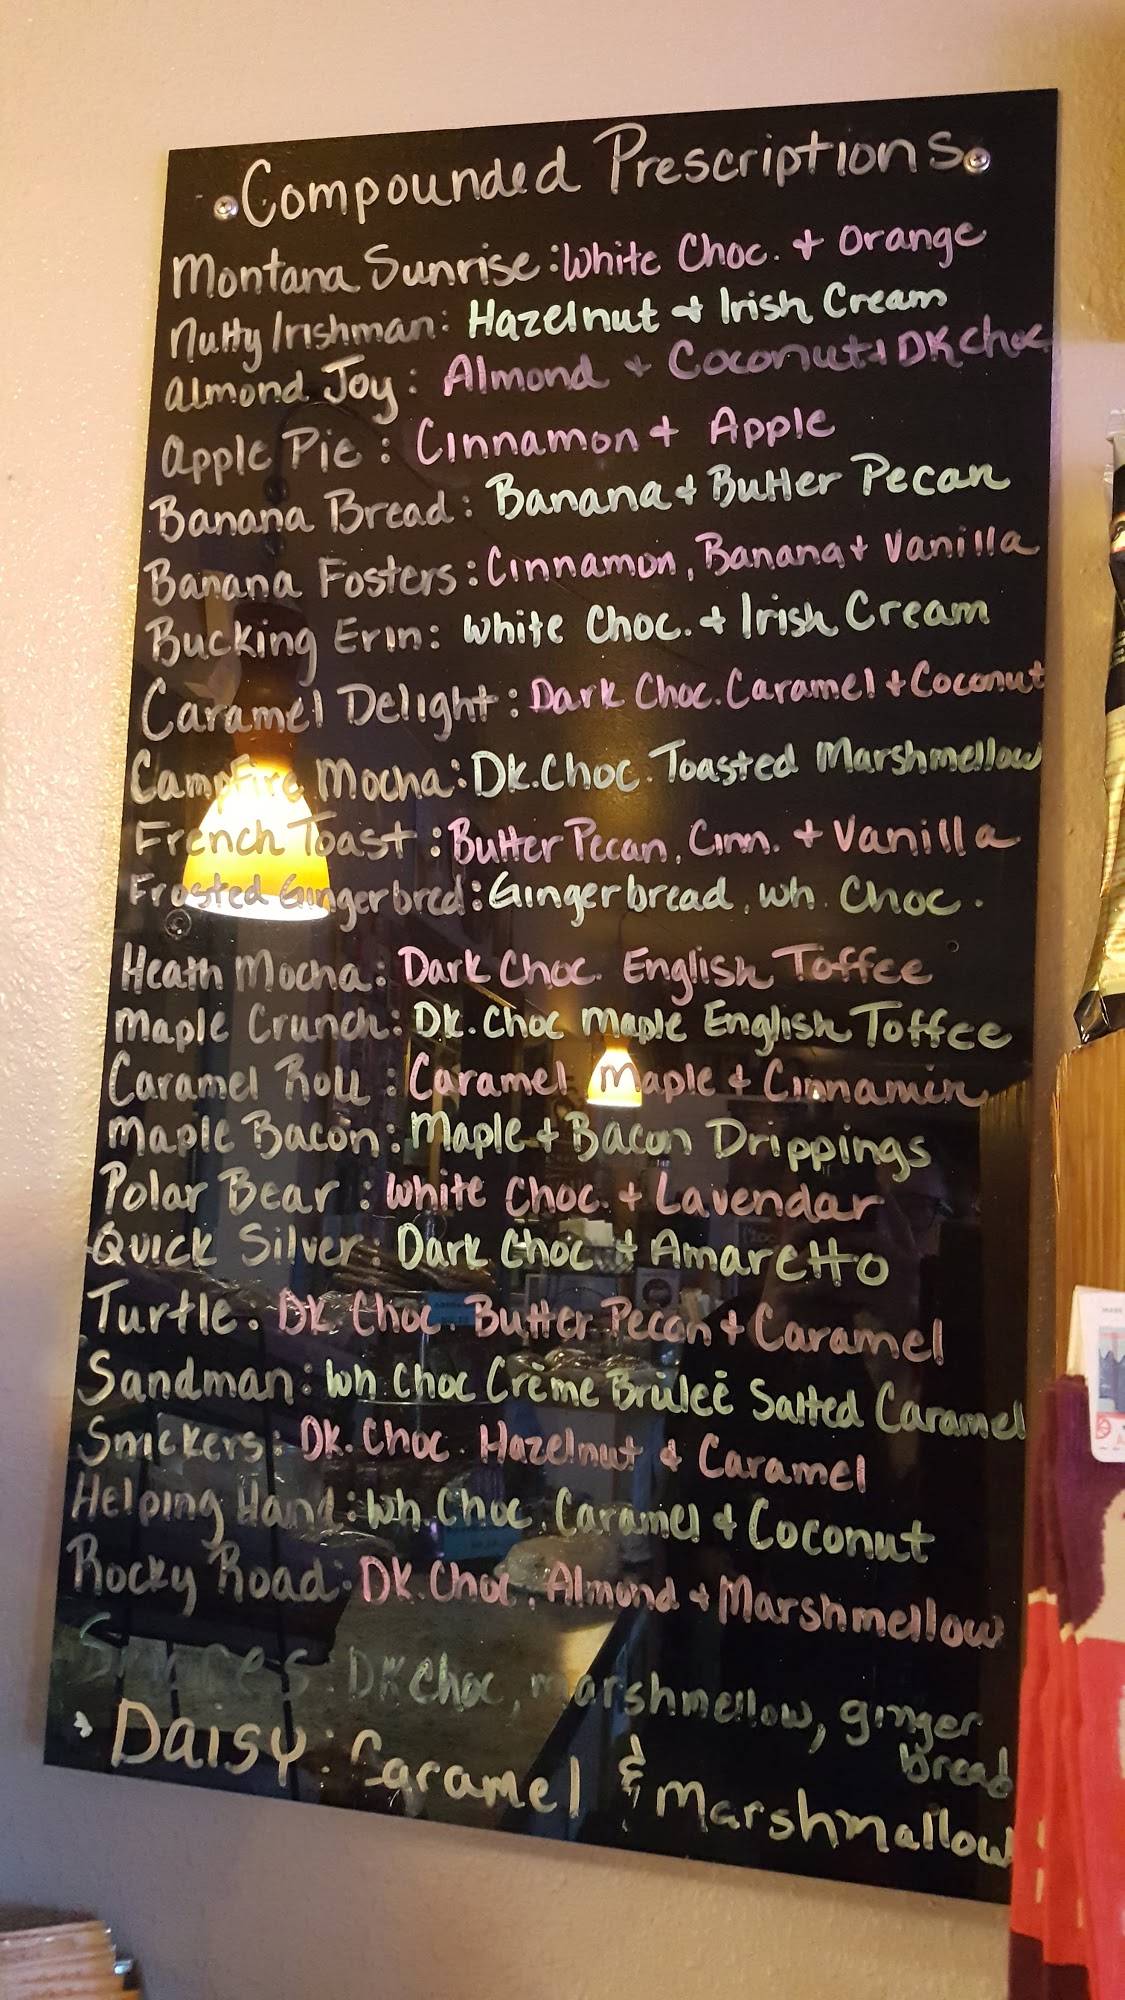 Compounded Prescriptions
Montana Sunrise: White Choc. + Orange
Nutty Irishman: Hazelnut + Irish Cream
Almond Joy: Almond + Coconut + DK choc
Apple Pie: Cinnamon + Apple
Banana Bread: Banana + Butter Pecan
Banana Fosters: Cinnamon, Banana + Vanilla
Bucking Erin: White Choc. + Irish Cream
Caramel Delight: Dark Choc. Caramel + Coconut
CampFire Mocha: Dk. Choc. Toasted Marshmellow
French Toast: Butter Pecan, Cinn. + Vanilla
Frosted Gingerbred: Gingerbread, wh. Choc.
Heath Mocha: Dark Choc. English Toffee
Maple Crunch: Dk. Choc Maple English Toffee
Caramel Roll: Caramel, Maple + Cinnamin
Maple Bacon: Maple + Bacon Drippings
Polar Bear: White Choc. + Lavendar
Quick Silver: Dark Choc. + Amaretto
Turtle: DK Choc. Butter Pecan + Caramel
Sandman: Wh Choc Crème Brûleė Salted Caramel
Snickers: DK. Choc. Hazelnut & Caramel
Helping Hand: Wh. Choc. Caramel & Coconut
Rocky Road: DK. Choc, Almond + Marshmellow
DK Choc, marshmellow, ginger
bread
Daisy: Caramel & Marshmallow